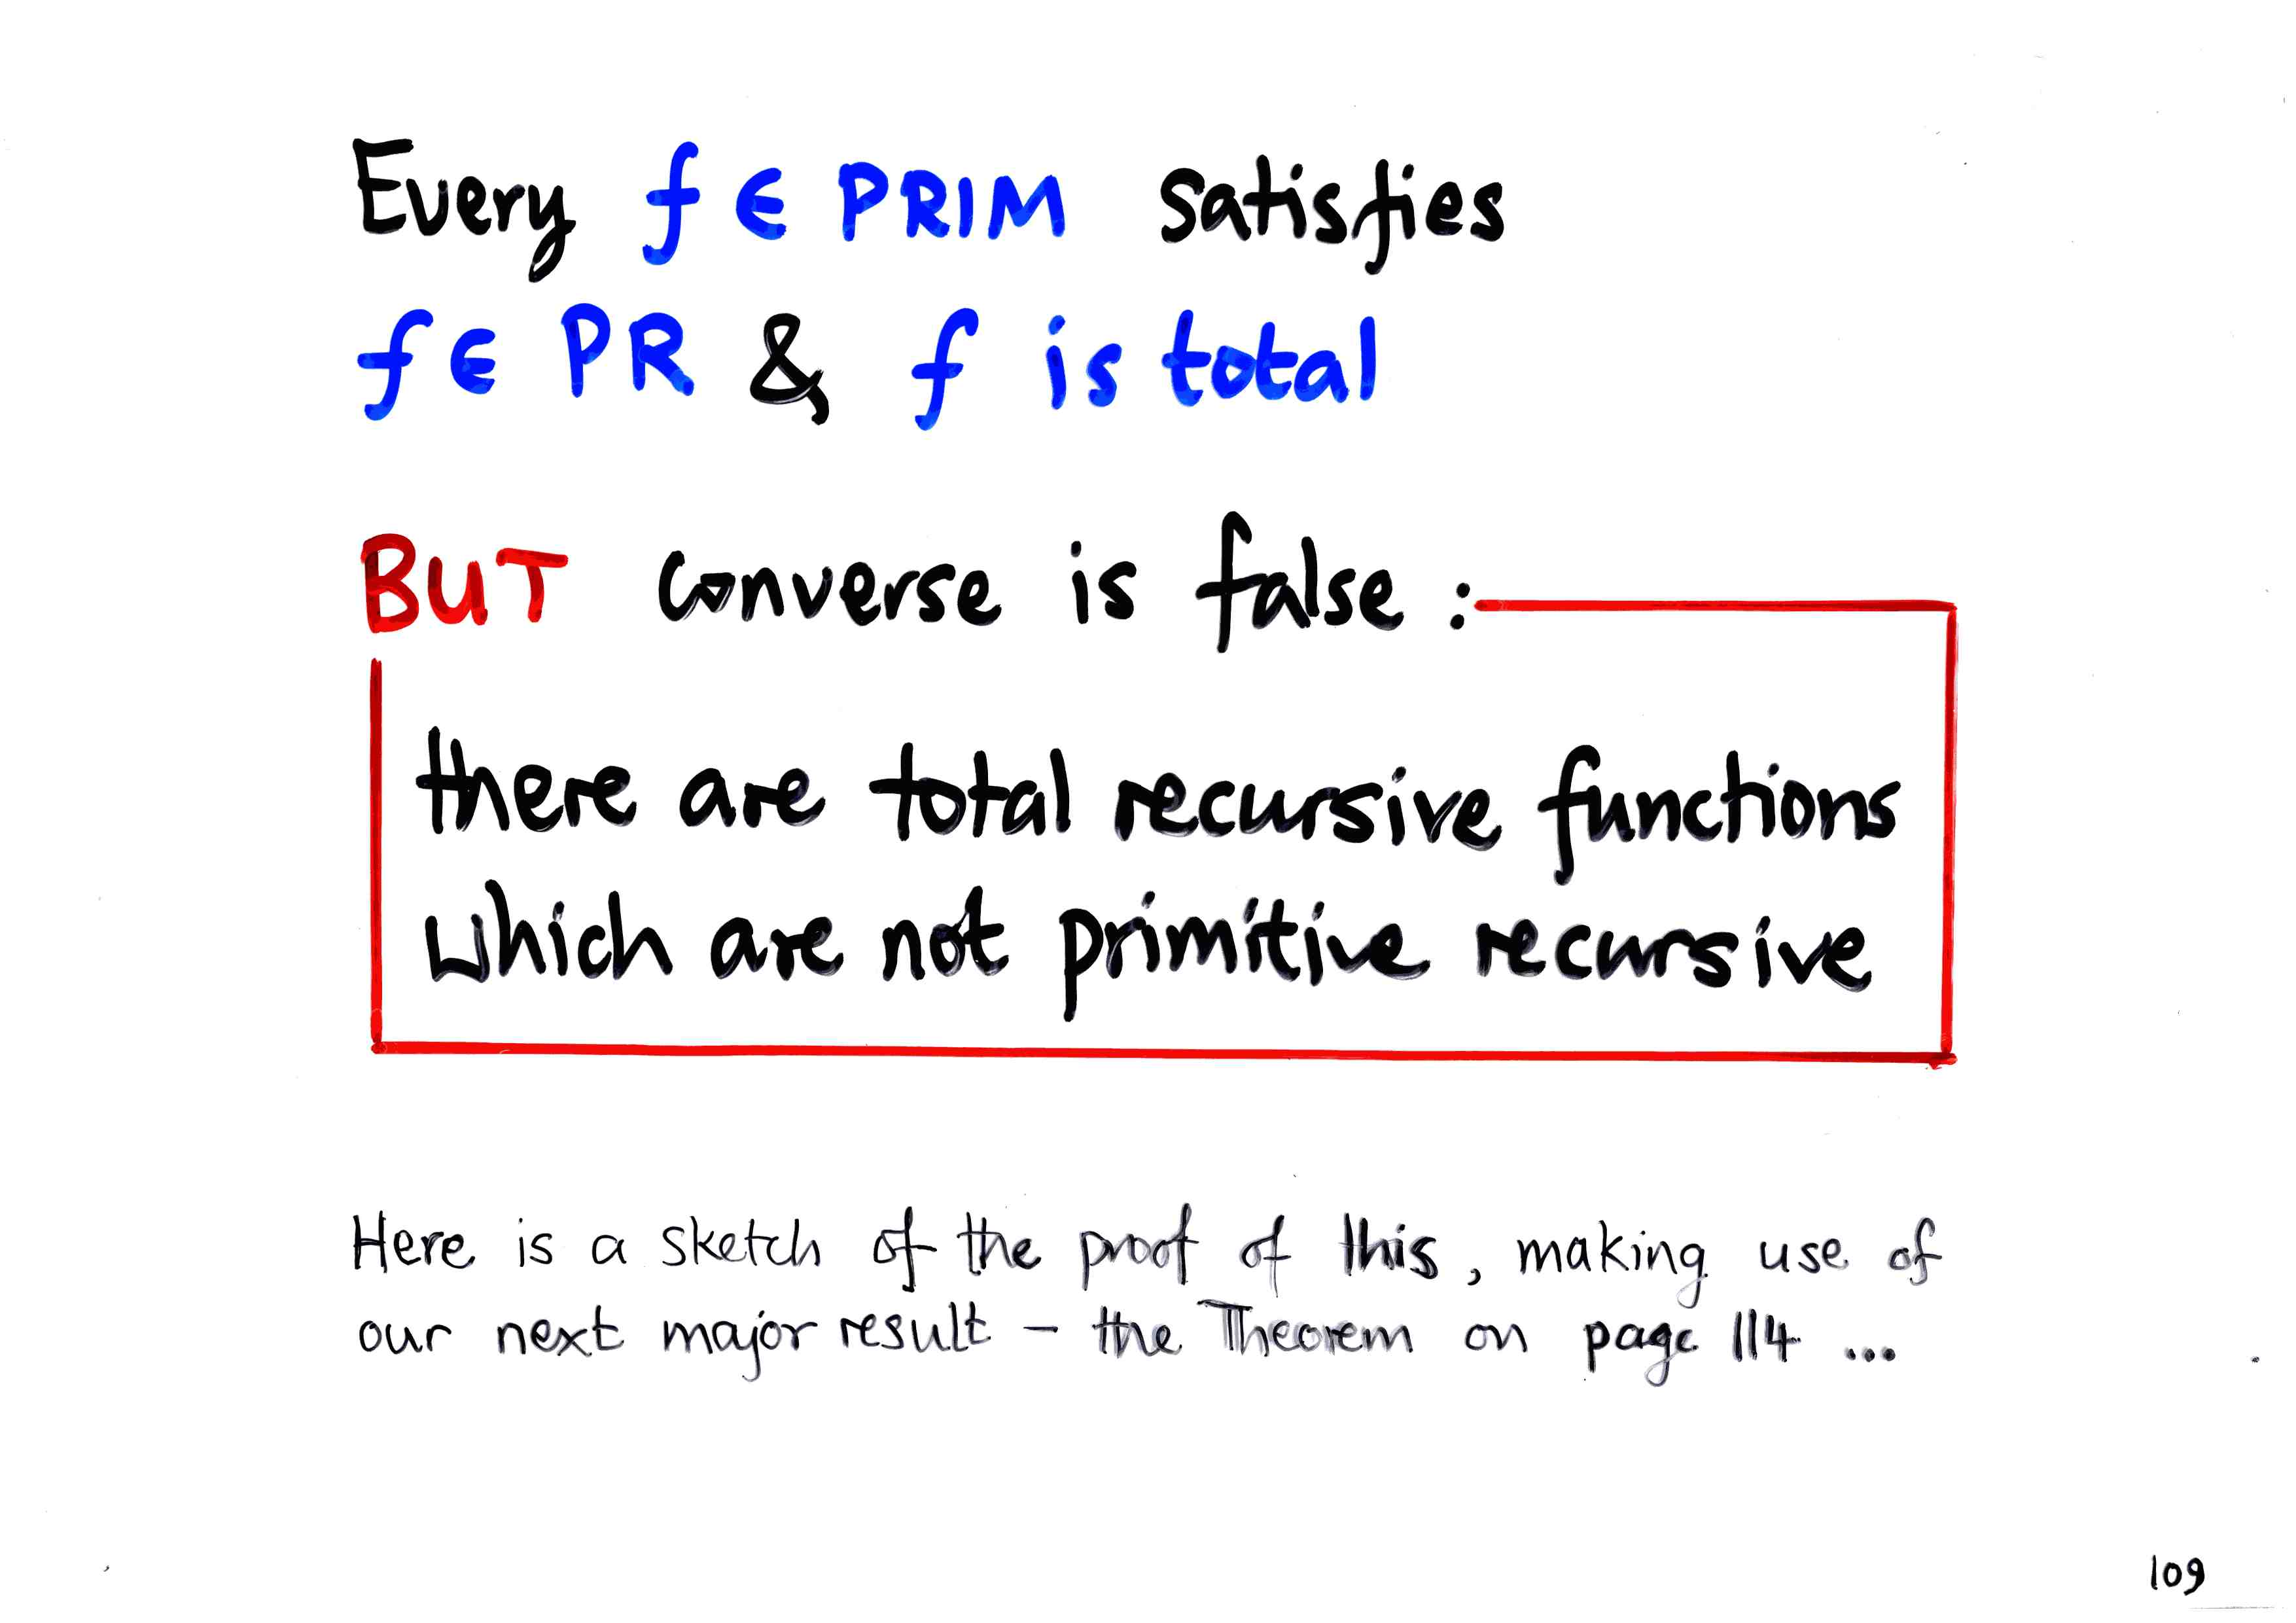 Every f ∈ PRIM satisfies
f ∈ PR & f is total
BUT converse is false :
there are total recursive functions
which are not primitive recursive
Here is a sketch of the proof of this, making use of
our next major result – the Theorem on page 114 ...
109